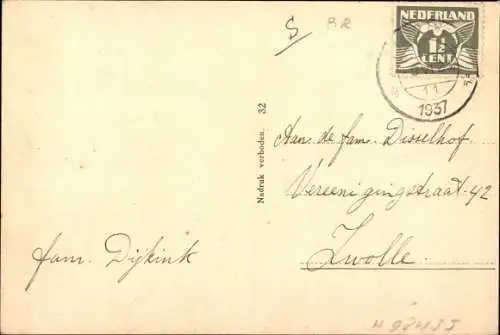 S BR
NEDERLAND
1½
CENT
11
1937
Nadruk verboden. 32
Aan de fam. Disselhof
Vereenigingstraat 42
Zwolle
fam. Dijkink